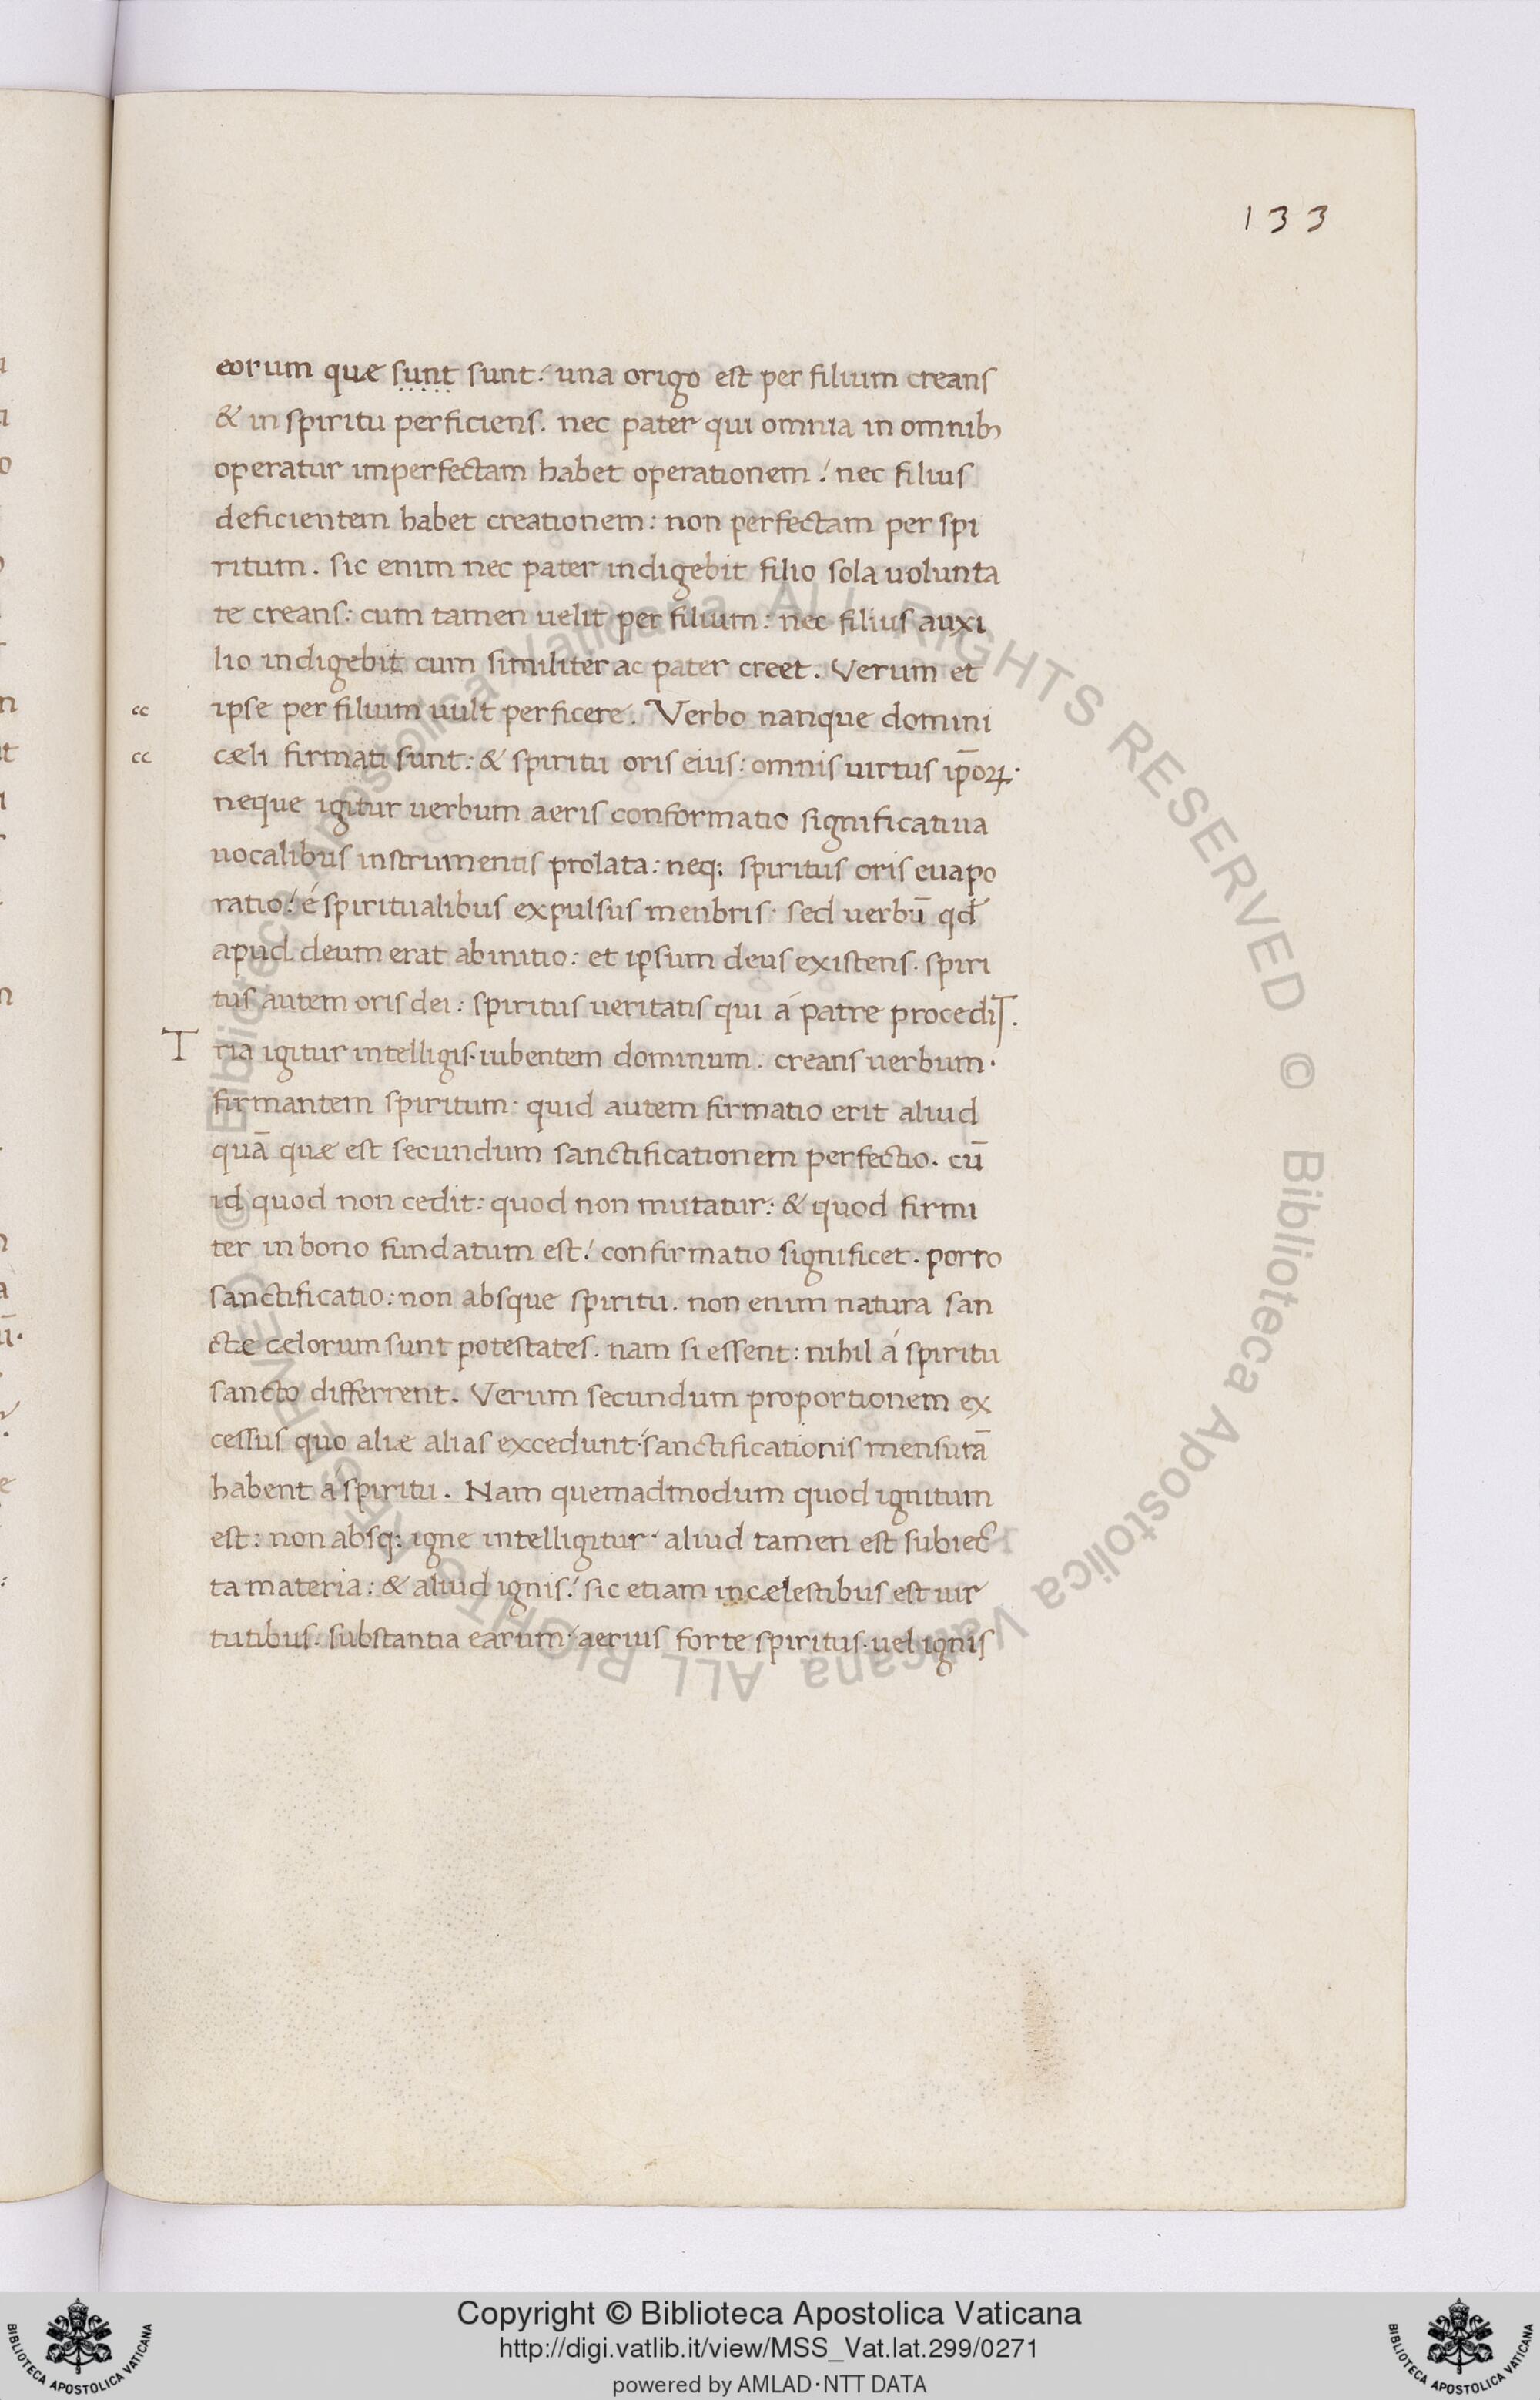 133
eorum quæ sunt sunt: una origo est per filium creans
& in spiritu perficiens. nec pater qui omnia in omnibꝫ
operatur imperfectam habet operationem: nec filius
deficientem habet creationem: non perfectam per spi
ritum. sic enim nec pater indigebit filio sola uolunta
te creans: cum tamen uelit per filium: nec filius auxi
lio indigebit cum similiter ac pater creet. Verum et
cc ipse per filium uult perficere. Verbo nanque domini
cc cæli firmati sunt: & spiritu oris eius: omnis uirtus ip̄oꝝ.
neque igitur uerbum aeris conformatio significatiua
uocalibus instrumentis prolata: neq: spiritus oris euapo
ratio: é spiritualibus expulsus menbris. sed uerbū qd́
apud deum erat abinitio: et ipsum deus existens. spiri
tus autem oris dei: spiritus ueritatis qui á patre procedit.
Tria igitur intelligis. iubentem dominum. creans uerbum.
firmantem spiritum. quid autem firmatio erit aliud
quā quæ est secundum sanctificationem perfectio. cū
id quod non cedit: quod non mutatur: & quod firmi
ter in bono fundatum est: confirmatio significet. porro
sanctificatio: non absque spiritu. non enim natura san
ctæ cælorum sunt potestates. nam si essent: nihil á spiritu
sancto differrent. Verum secundum proportionem ex
cessus quo aliæ alias excedunt: sanctificationis mensutā
habent á spiritu. Nam quemadmodum quod ignitum
est: non absq: igne intelligitur. aliud tamen est subiec
ta materia: & aliud ignis: sic etiam in cælestibus est uir
tutibus. substantia earum: aerius forte spiritus. uel ignis
Copyright © Biblioteca Apostolica Vaticana
http://digi.vatlib.it/view/MSS_Vat.lat.299/0271
powered by AMLAD·NTT DATA